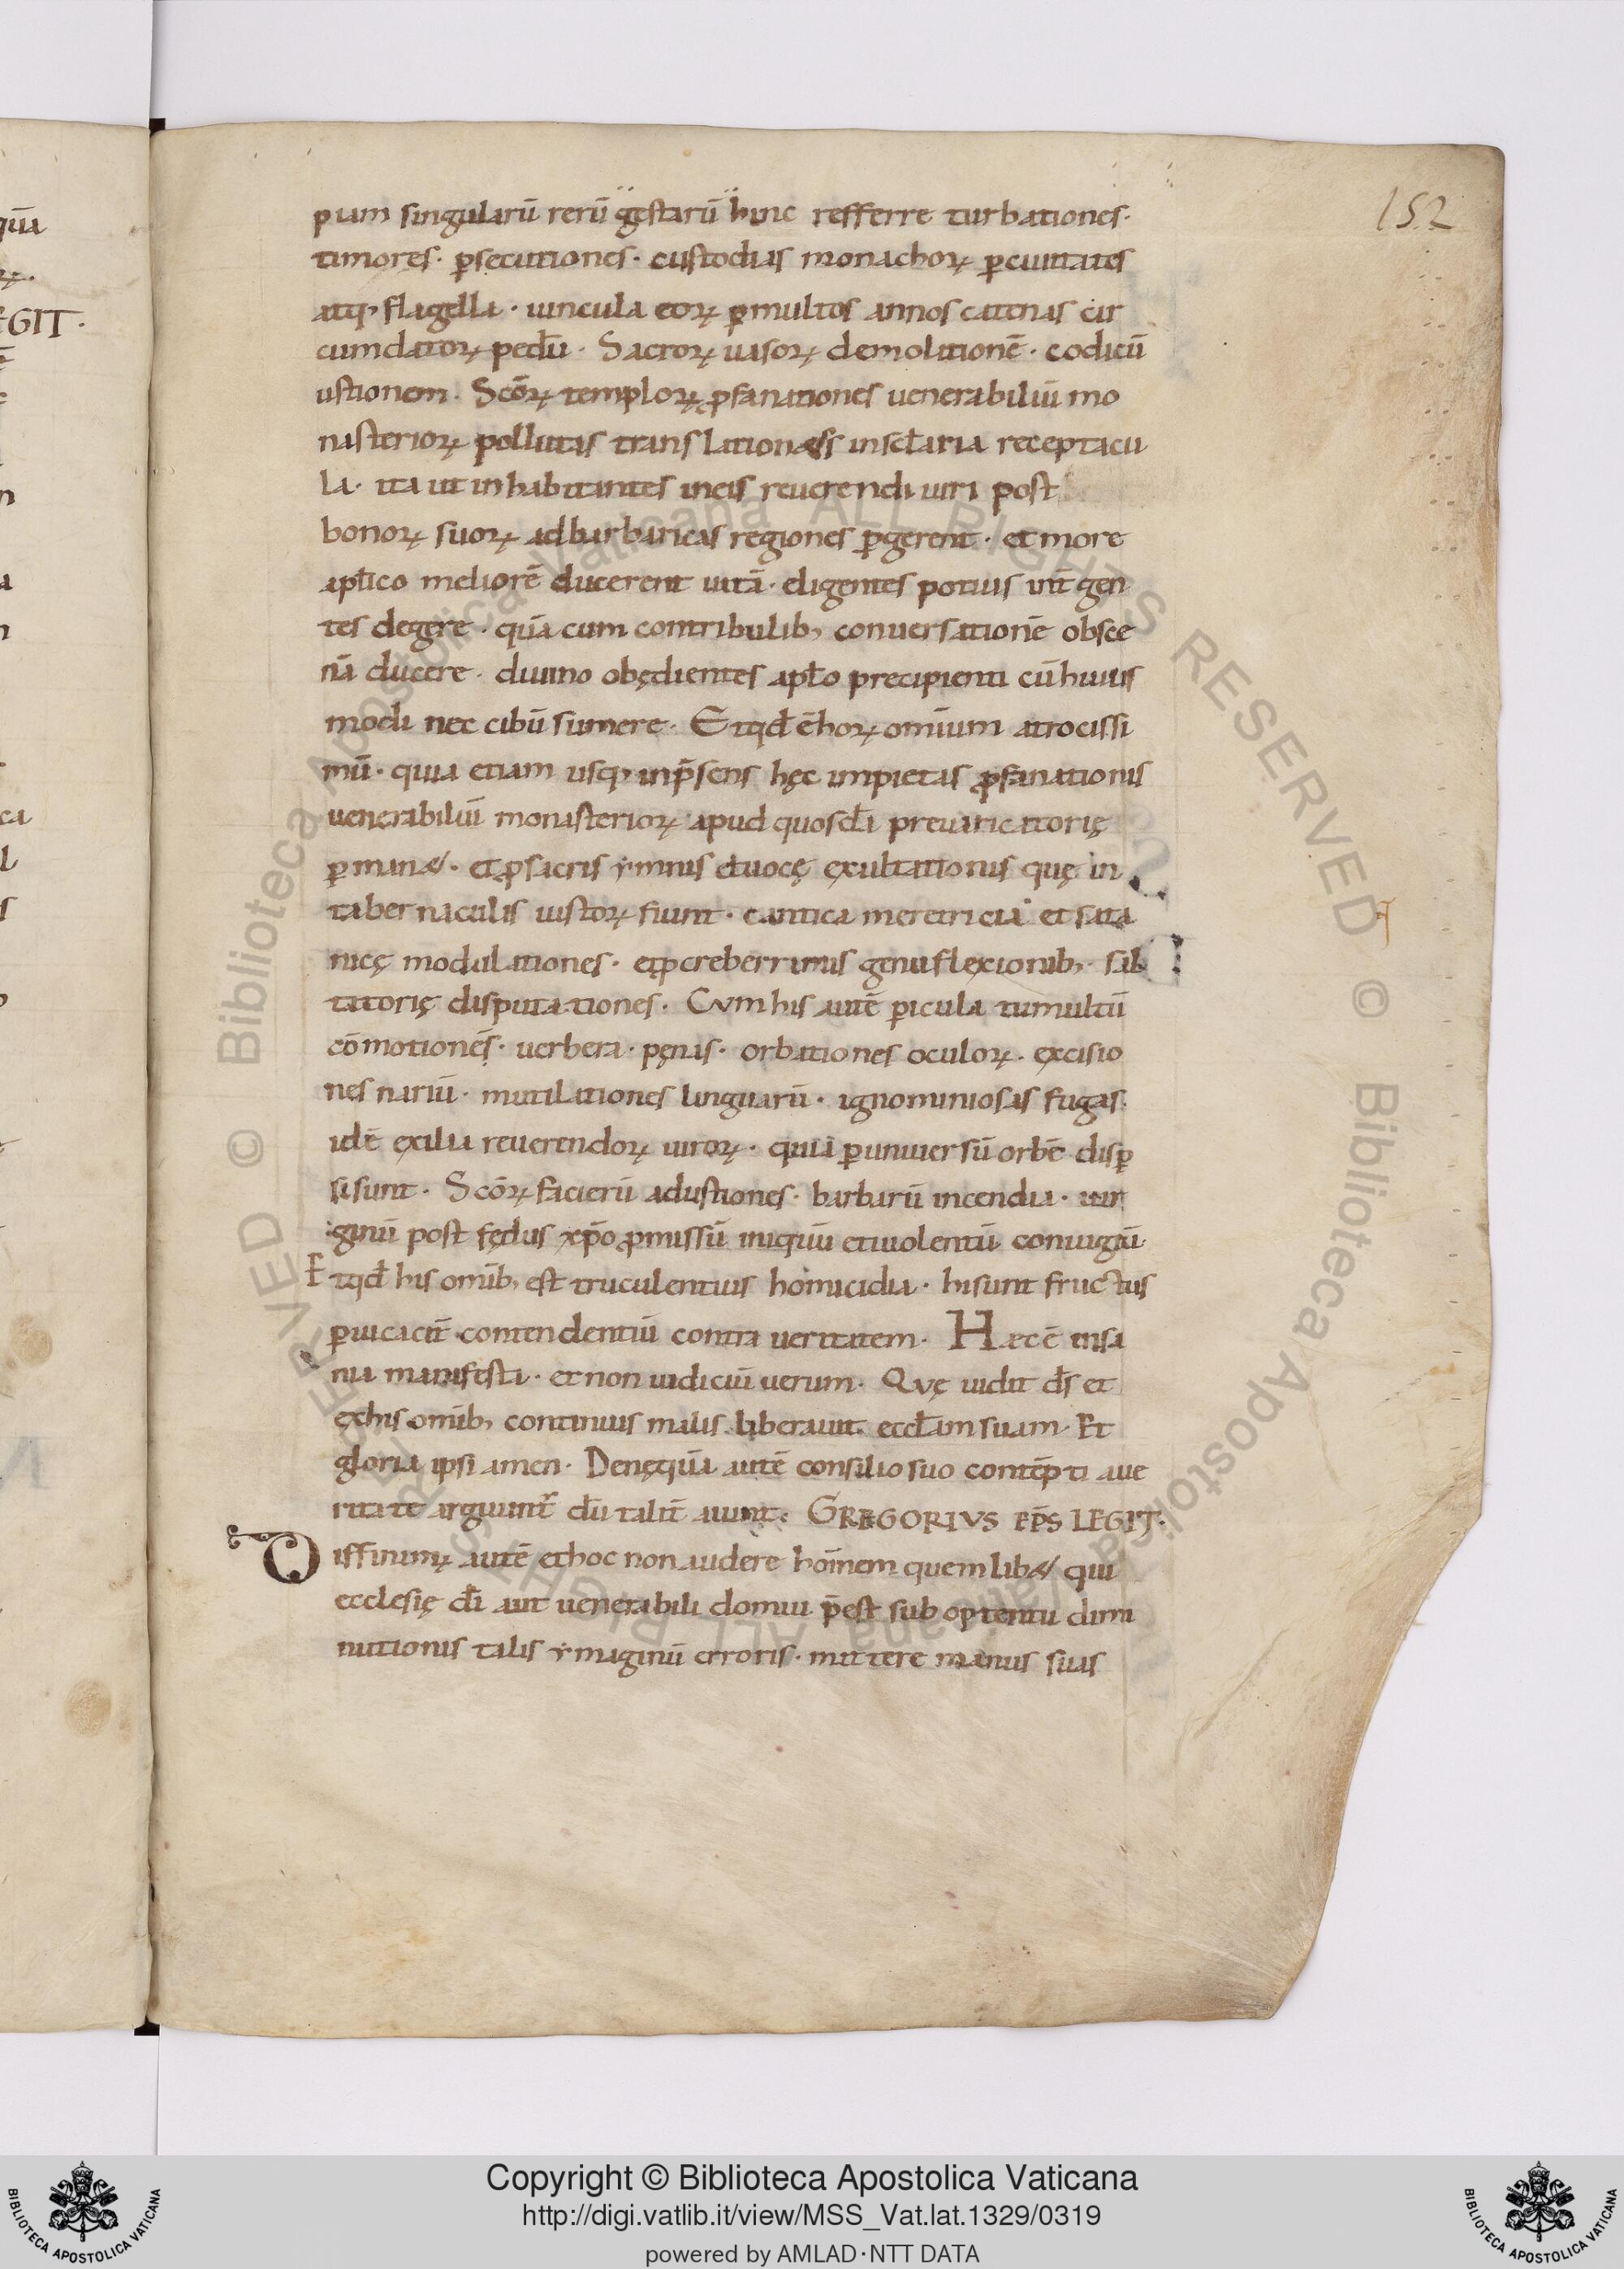 152
pium singularū rerū gestarū hinc refferre turbationes·
timores· ꝑsecutiones· custodias monachoꝝ ꝑ ciuitates
atq; flagella· uincula eoꝝ ꝑ multos annos catenas cir
cumdatoꝝ pedū· Sacroꝝ uasoꝝ demolitionē· codicū
ustionem· Scōꝝ temploꝝ ꝓfanationes uenerabiliū mo
nasterioꝝ pollutas translationes in sc̄laria receptacu
la· ita ut inhabitantes in eis reuerendi uiri post
bonoꝝ suoꝝ ad barbaricas regiones ꝑgerent· et more
apl̄ico meliorē ducerent uitā· eligentes potius int̄ gen
tes degere· quā cum contribulib; conuersationē obsce
nā ducere· diuino obędientes apl̄o precipienti cū huius
modi nec cibū sumere· Et qd̄ ē hoꝝ omīum atrocissi
mū· quia etiam usq; in p̄sens hęc impietas ꝓfanationis
uenerabiliū monasterioꝝ apud quosdā preuaricatorię
ꝑmanet· et ꝓ sacris ymnis et uocę exultationis quę in
tabernaculis iustoꝝ fiunt· cantica meretricia et sata
nicę modulationes· et ꝓ creberrimis genuflexionib;· sal
tatorię disputationes· Cum his autē ꝑicula tumultū
cōmotiones· uerbera· pęnas· orbationes oculoꝝ· excisio
nes nariū· mutilationes linguarū· ignominiosas fugas·
idē exilia reuerendoꝝ uiroꝝ· quia ꝑ uniuersū orbē disꝑ
si sunt· Scōꝝ facierū adustiones· barbarū incendia· uir
ginū post fędus xp̄o ꝓmissū iniquū et uiolentū coniugiū·
Et qd̄ his omīb; est truculentius homicidia· hi sunt fructus
ꝑuicacit̄ contendentiū contra ueritatem· Haec ē insa
nia manifesta· et non iudiciū uerum· Quę uidit d̄s et
ex his omīb; continuis malis liberauit eccl̄am suam· Et
gloria ipsi amen· Denęquā autē consilio suo contēpti a ue
ritate arguunt̄ dū talit̄ aiunt· GREGORIVS EP̄S LEGIT·
Diffinimꝰ autē et hoc non audere hoīnem quemlibet qui
ecclesię dī aut uenerabili domui p̄est sub optentu dimi
nutionis talis ymaginū erroris· mittere manus suas
quā
EGIT·
Copyright © Biblioteca Apostolica Vaticana
http://digi.vatlib.it/view/MSS_Vat.lat.1329/0319
powered by AMLAD·NTT DATA
BIBLIOTECA APOSTOLICA VATICANA
BIBLIOTECA APOSTOLICA VATICANA